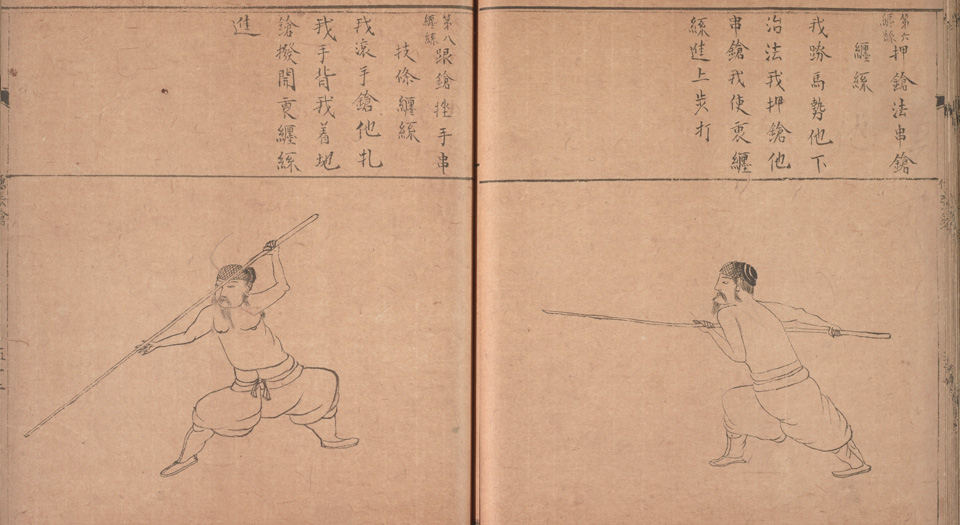 第六纏絲
押鎗法串鎗
纏絲
我跨馬勢他下
治法我押鎗他
串鎗我使裏纏
絲進上步打
第八纏絲
跟鎗挫手串
技條纏絲
我滚手鎗他扎
我手背我着地
鎗撥開裏纏絲
進